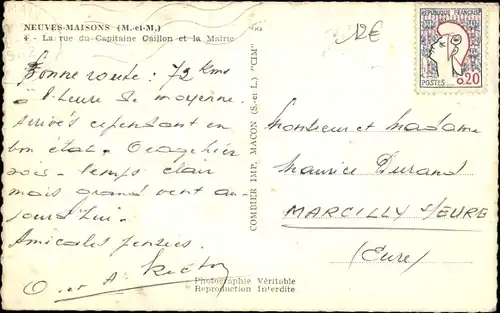 NEUVES-MAISONS (M.-et-M.)
4 - La rue du Capitaine Caillon et la Mairie
Bonne route : 72 kms
à l'heure de moyenne.
Arrivés cependant en
bon état. Orage hier
soir. Temps clair
mais grand vent au-
jourd'hui.
Amicales pensées.
O. et A.
COMBIER IMP. MACON (S.-et-L.) "CIM"
Photographie Véritable
Reproduction Interdite
12€
REPUBLIQUE FRANÇAISE
POSTES 0,20
Monsieur et Madame
Maurice Durand
MARCILLY s/EURE
(Eure)